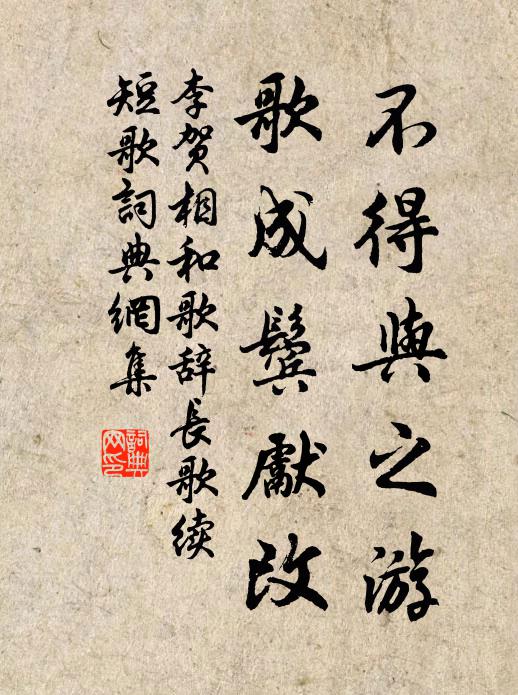 不得與之游
歌成鬓獻改
李贺相和歌辞長歌续
短歌詞典網集
詞典
网印